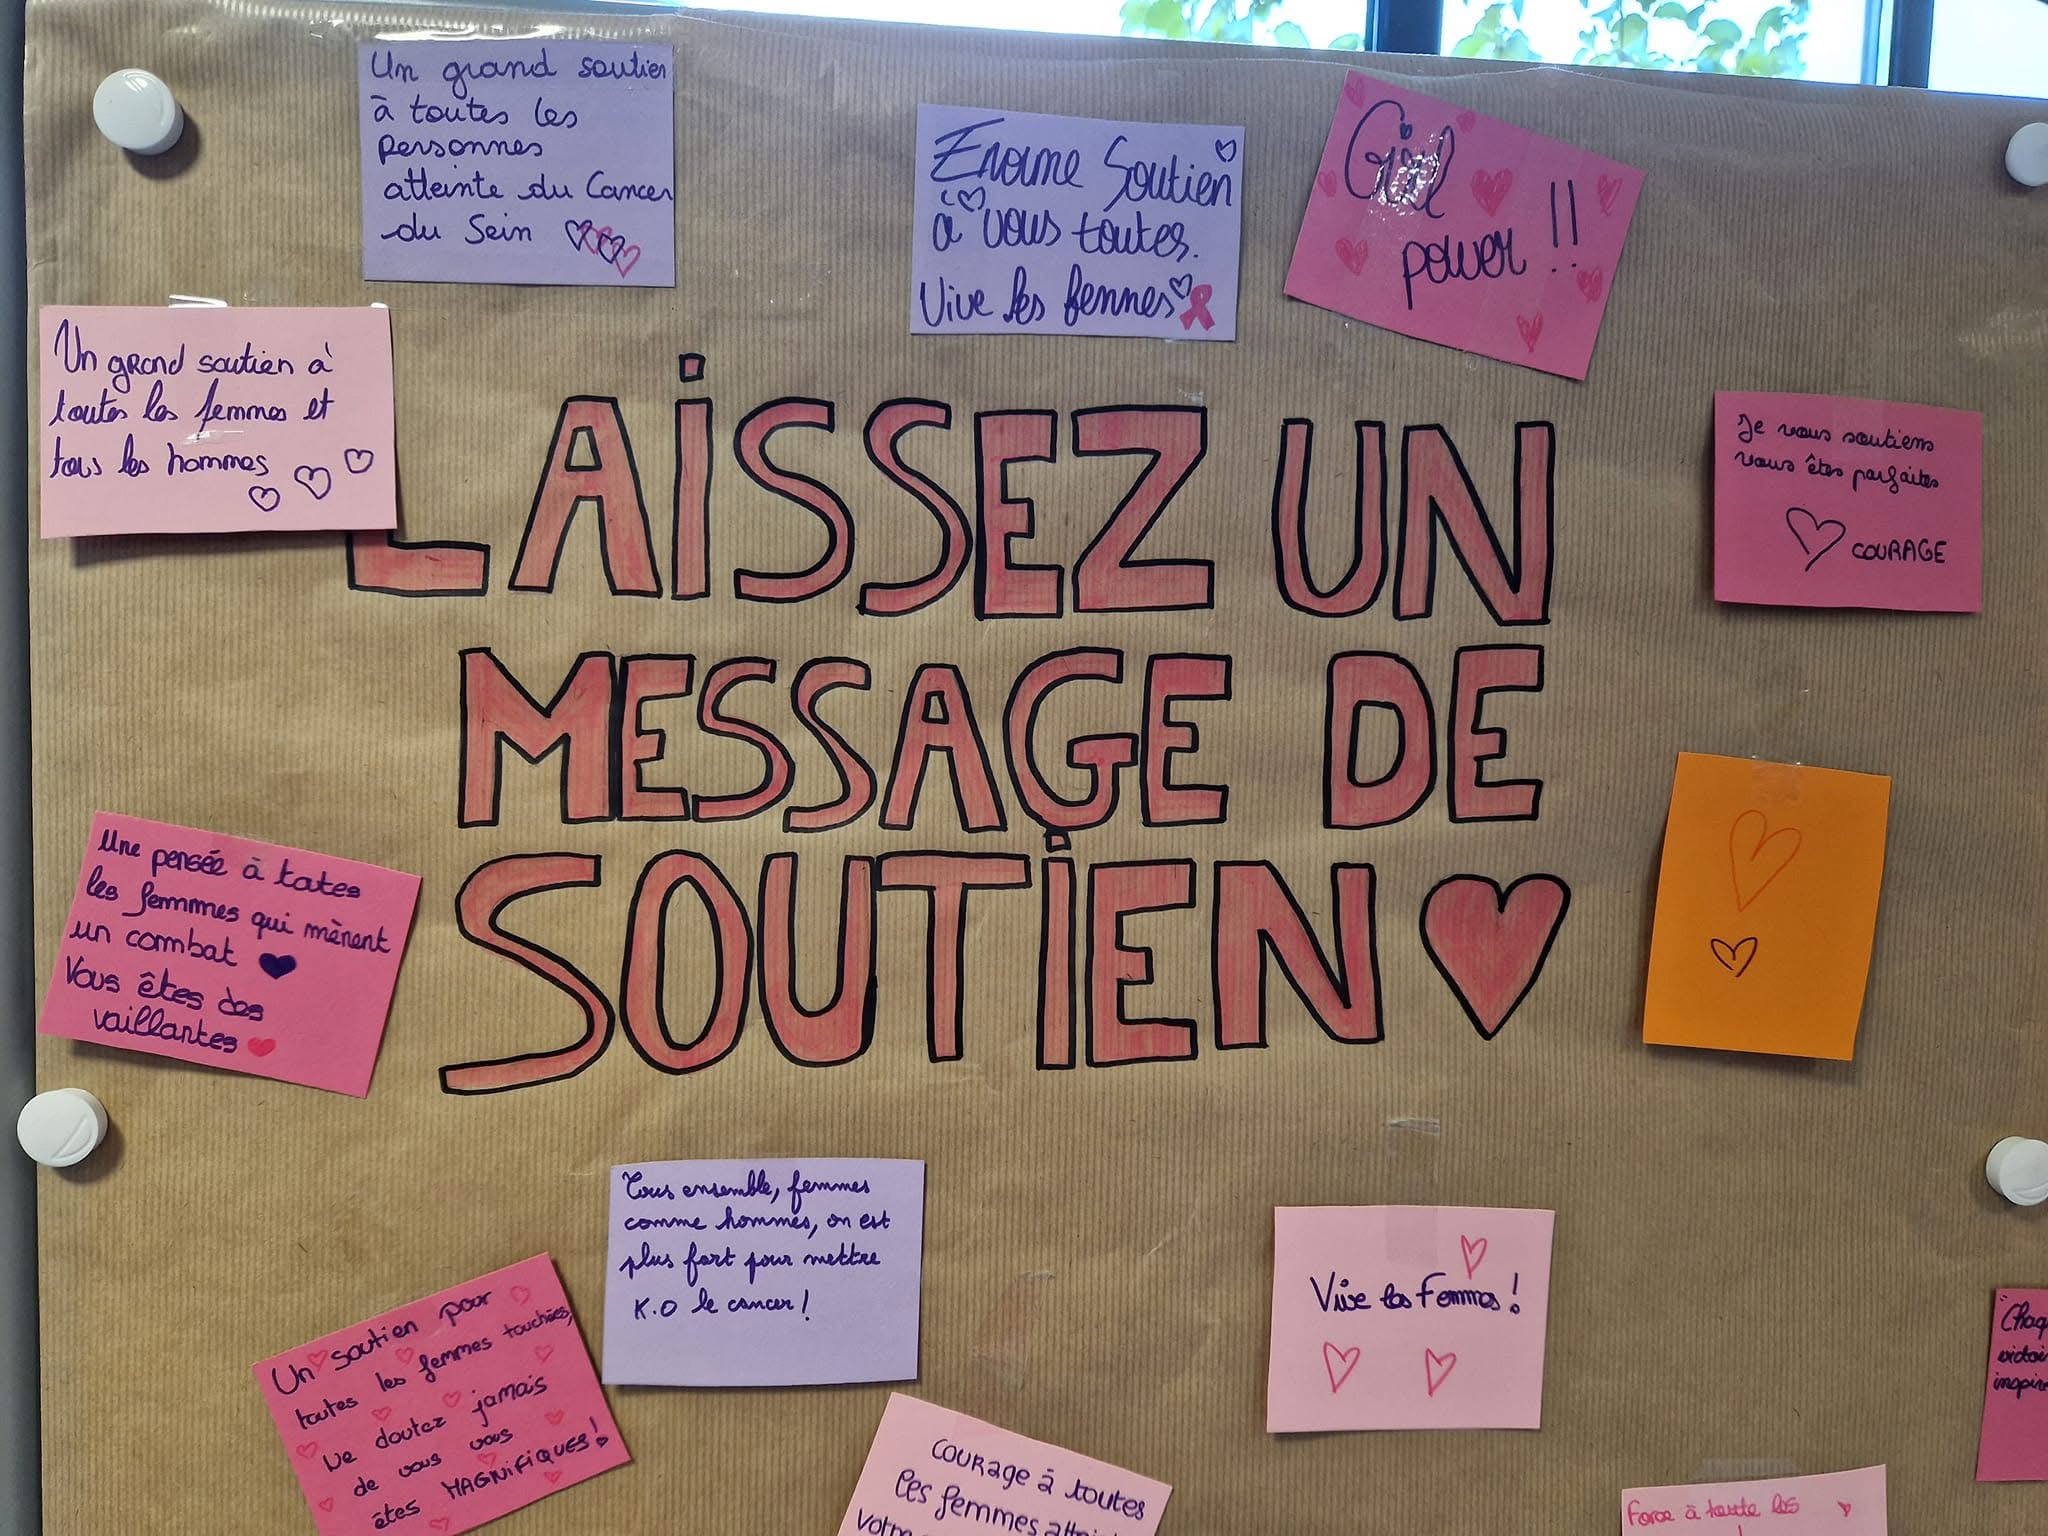 Un grand soutien
à toutes les
personnes
atteinte du Cancer
du Sein
Enorme Soutien
à vous toutes.
Vive les femmes
Girl
power !!
Un grand soutien à
toutes les femmes et
tous les hommes
LAISSEZ UN
MESSAGE DE
SOUTIEN
Je vous soutiens
vous êtes parfaites
COURAGE
Une pensée à toutes
les femmmes qui mènent
un combat
Vous êtes des
vaillantes
Tous ensemble, femmes
comme hommes, on est
plus fort pour mettre
K.O le cancer !
Vive les Femmes !
Un soutien pour
toutes les femmes touchées,
Ne doutez jamais
de vous vous
êtes MAGNIFIQUES !
COURAGE à toutes
les femmes
Force à toute les